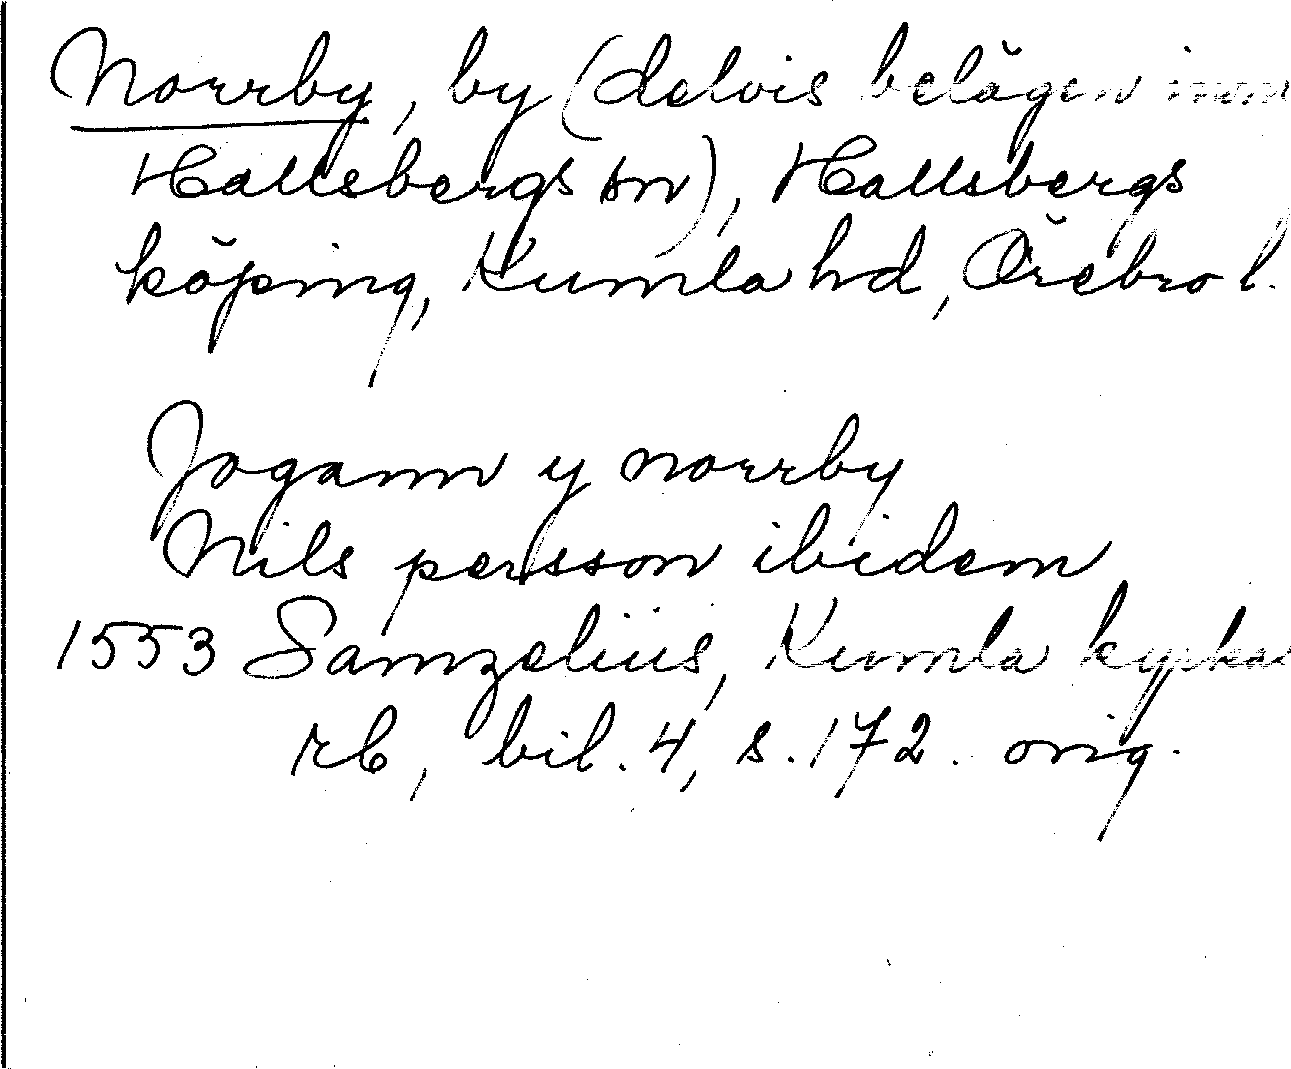 Norrby, by (delvis belägen inom
Hallsbergs sn), Hallsbergs
köping, Kumla hd, Örebro l.
Jogann y norrby
Nils persson ibidem
1553 Samzelius, Kumla kyrkas
rb, bil. 4, s. 172. orig.